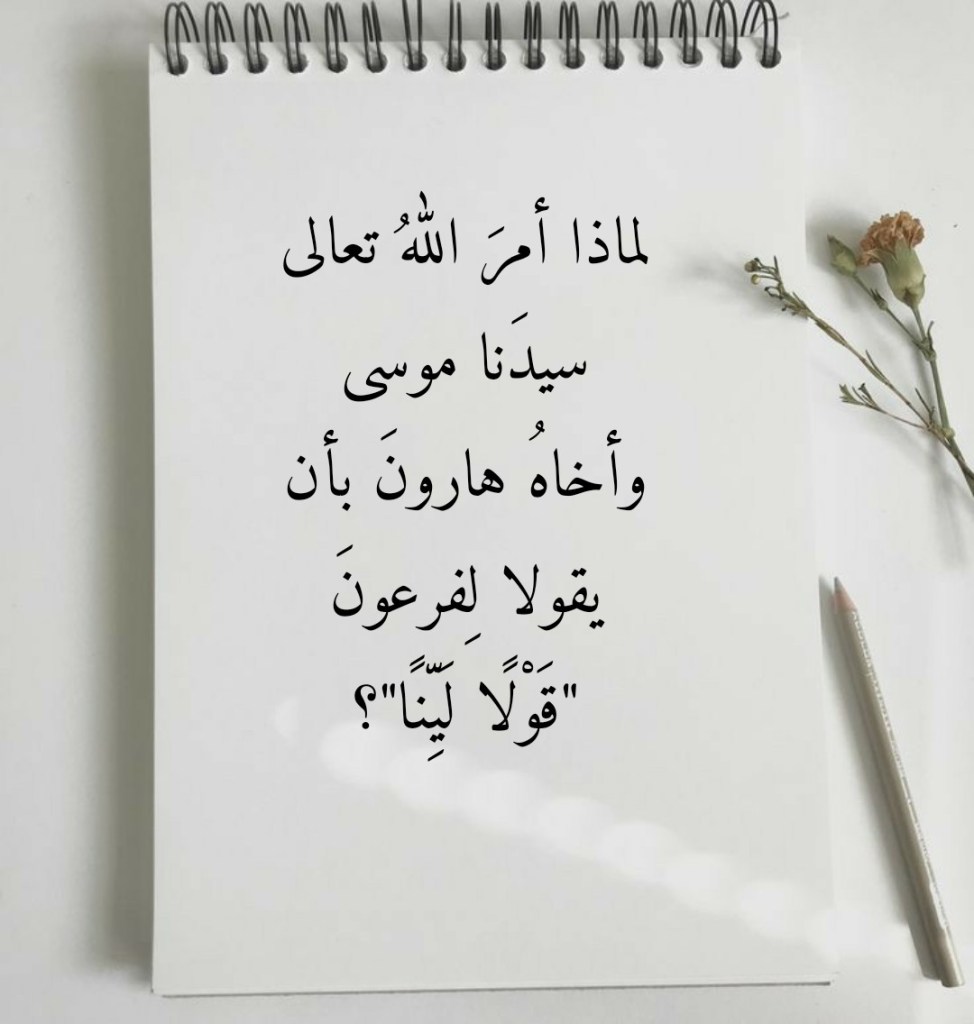 لماذا أمرَ اللهُ تعالى
سيدَنا موسى
وأخاهُ هارونَ بأن
يقولا لِفرعونَ
"قَوْلًا لَيِّنًا"؟